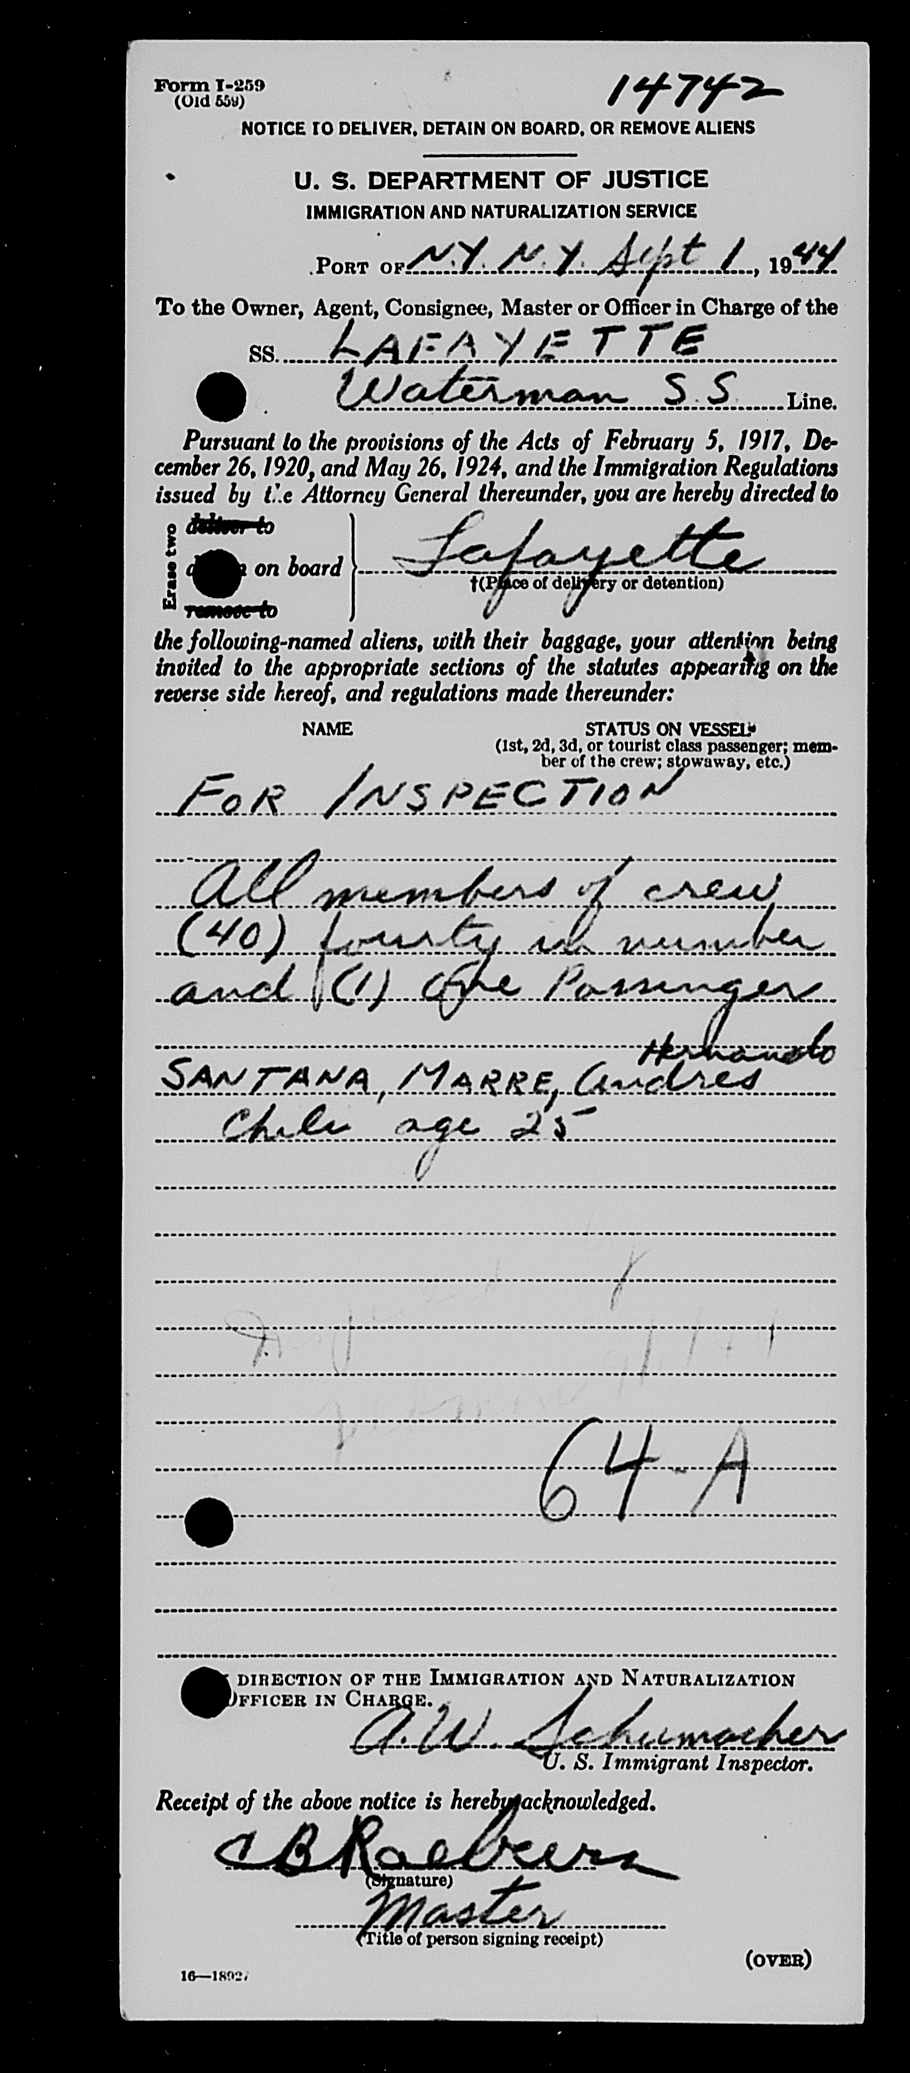 Form I-259
(Old 559)
14742
NOTICE TO DELIVER, DETAIN ON BOARD, OR REMOVE ALIENS
U. S. DEPARTMENT OF JUSTICE
IMMIGRATION AND NATURALIZATION SERVICE
PORT OF N.Y. N.Y. Sept 1, 1944
To the Owner, Agent, Consignee, Master or Officer in Charge of the
SS. LAFAYETTE
Waterman S.S. Line.
Pursuant to the provisions of the Acts of February 5, 1917, De-
cember 26, 1920, and May 26, 1924, and the Immigration Regulations
issued by the Attorney General thereunder, you are hereby directed to
Erase two
deliver to
on board
remove to
Lafayette
†(Place of delivery or detention)
the following-named aliens, with their baggage, your attention being
invited to the appropriate sections of the statutes appearing on the
reverse side hereof, and regulations made thereunder:
NAME STATUS ON VESSEL*
(1st, 2d, 3d, or tourist class passenger; mem-
ber of the crew; stowaway, etc.)
FOR INSPECTION
All members of crew
(40) fourty in number
and (1) One Passenger
Hernando
SANTANA, MARRE, Andres
Chile age 25
64-A
DIRECTION OF THE IMMIGRATION AND NATURALIZATION
OFFICER IN CHARGE.
A.W. Schumacher
U. S. Immigrant Inspector.
Receipt of the above notice is hereby acknowledged.
CB Raeburn
(Signature)
Master
(Title of person signing receipt)
(OVER)
16—18927